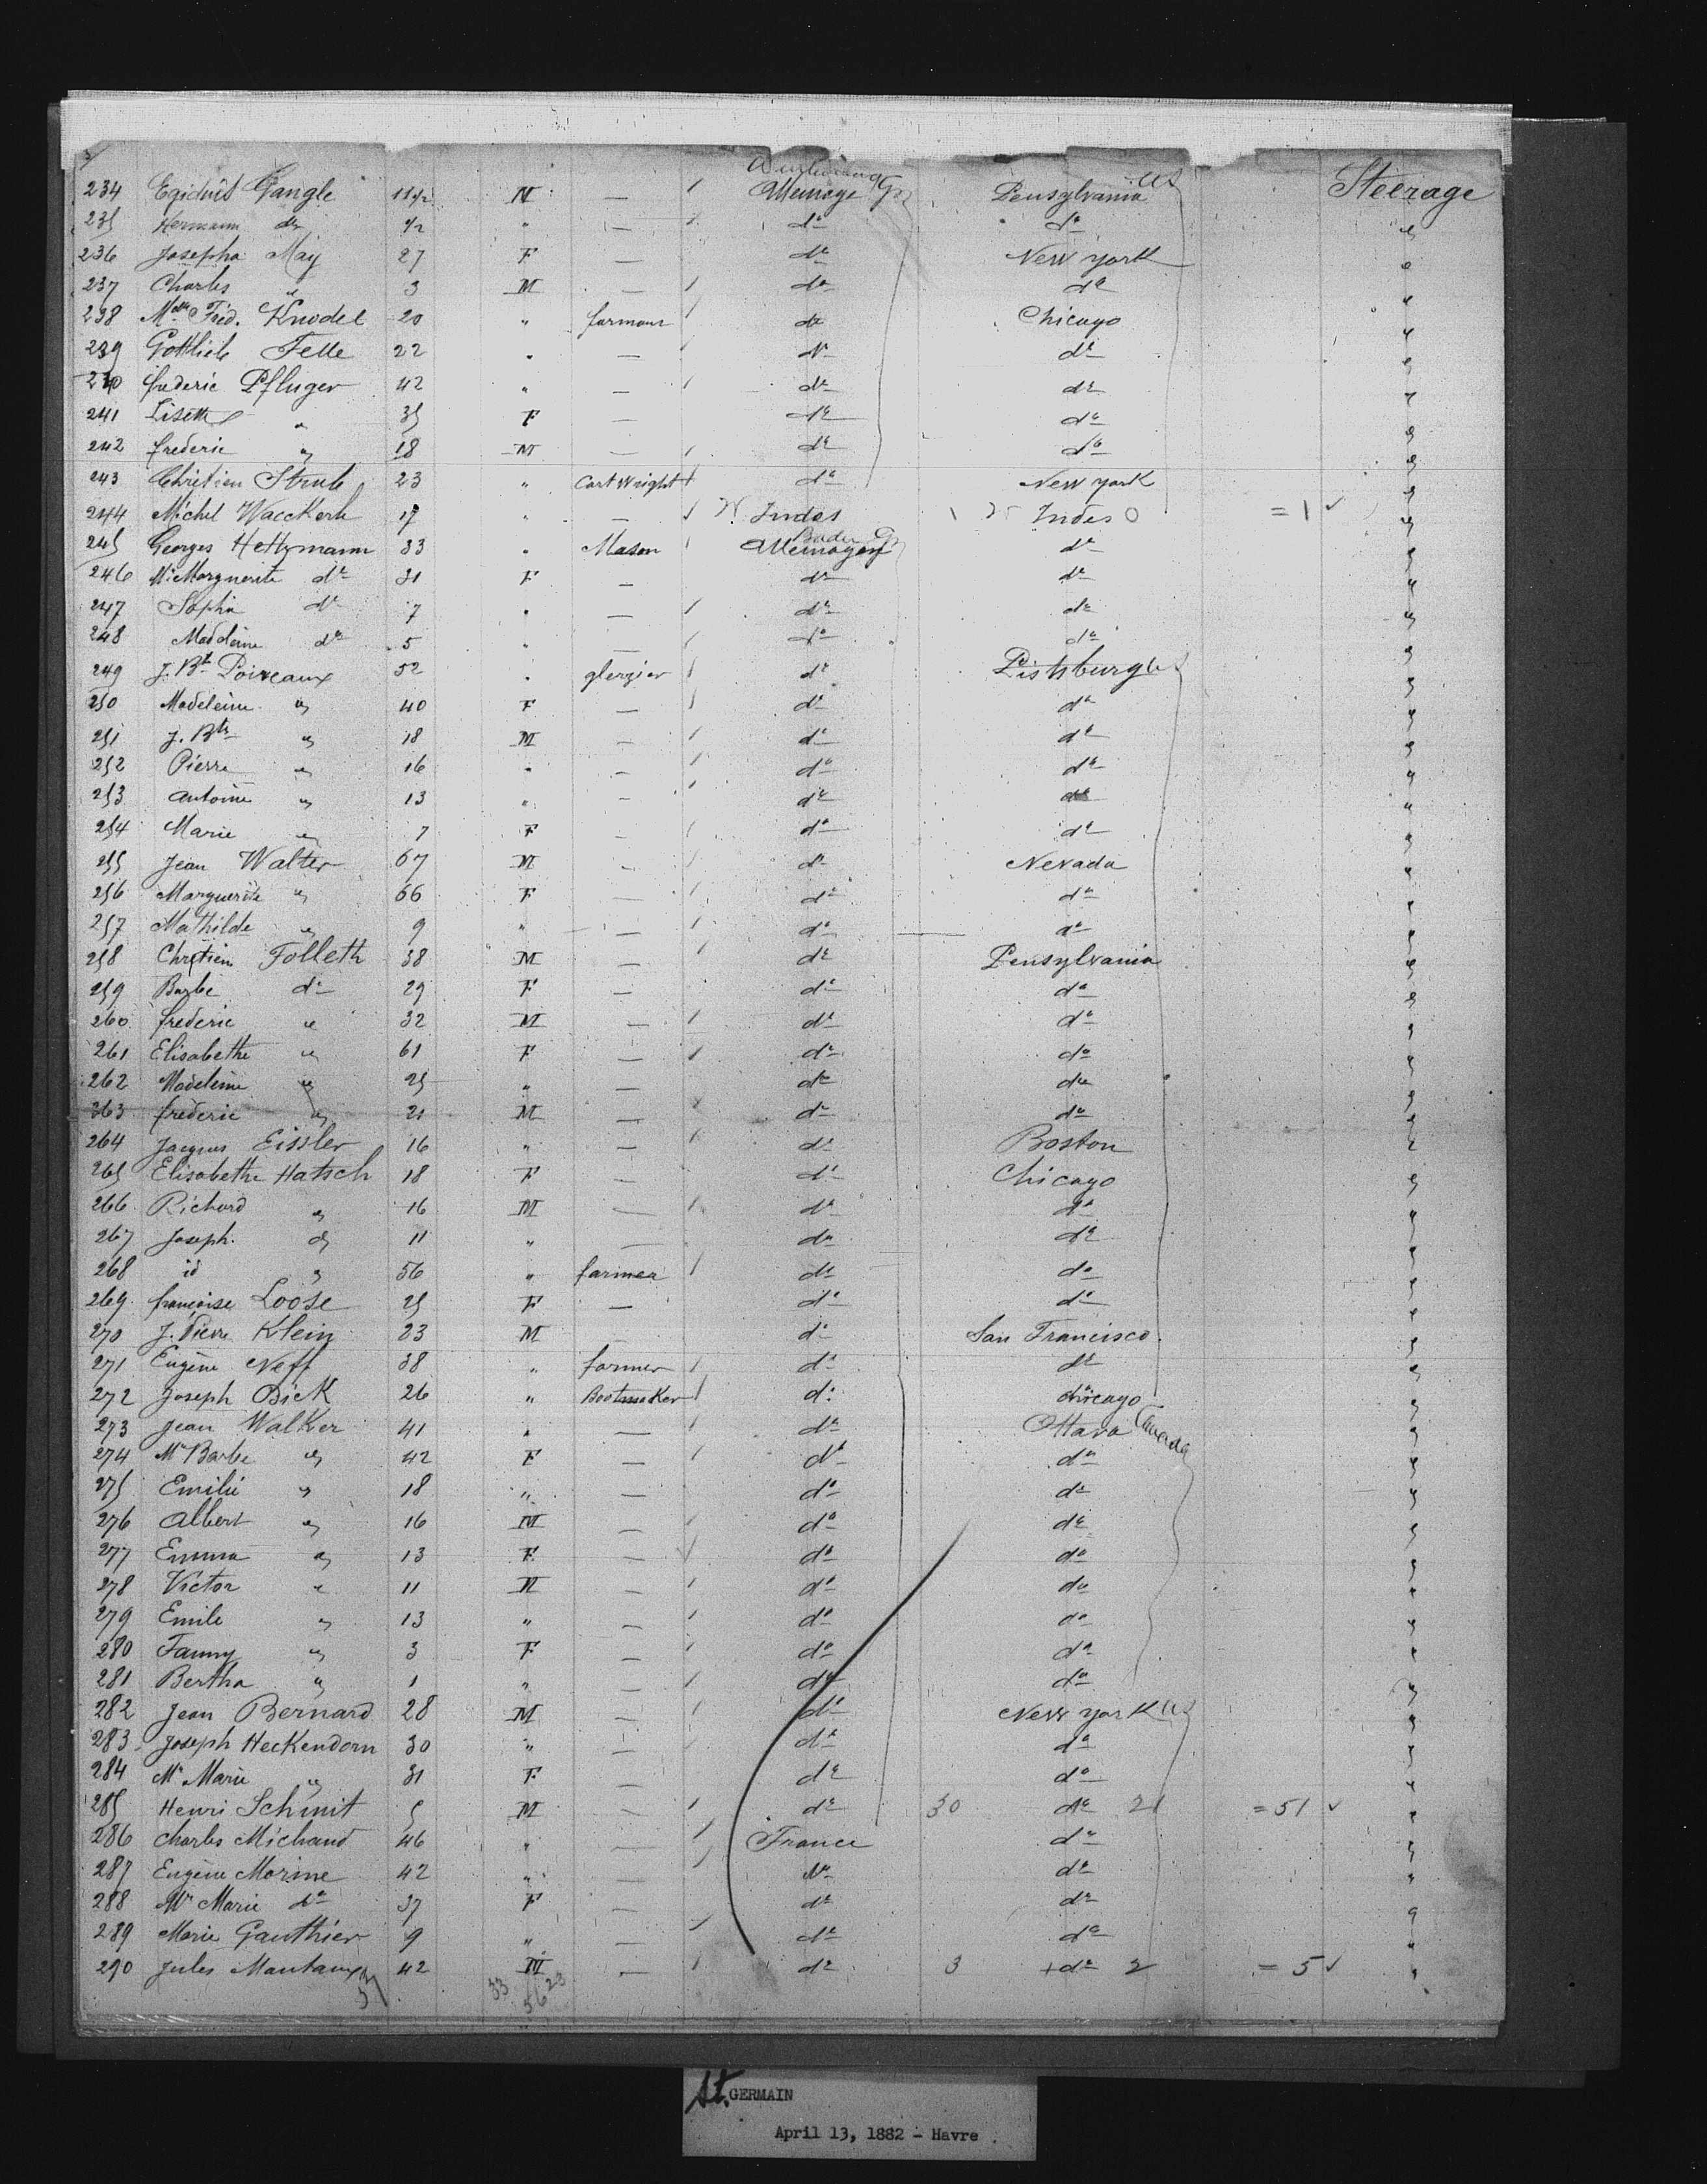 Steerage
234 Egidius Gangle 11 1/2 M — Allemagne Pensylvania US
235 Hermann do 1/2 " — do do
236 Josepha May 27 F — do New york
237 Charles " 3 M — do do
238 Fréd. Knodel 20 " farmour do Chicago
239 Gottlieb Felle 22 " — do do
240 frederic Pfluger 42 " — do do
241 Lisette " 35 F — do do
242 frederic " 18 M — do do
243 Chrétien Strub 23 " Cartwright do New york
244 Michel Waeckerle 17 " — Indes Indes = 1 ✓
245 Georges Hettzmann 33 " Mason Baden Allemagne do
246 Me Marguerite do 31 F — do do
247 Sophie do 7 " — do do
248 Madeleine do 5 " — do do
249 J. Bte Poireaux 52 " glazier do Pittsburg US
250 Madeleine " 40 F — do do
251 J. Bte " 18 M — do do
252 Pierre " 16 " — do do
253 Antoine " 13 " — do do
254 Marie " 7 F — do do
255 Jean Walter 67 M — do Nevada
256 Marguerite " 66 F — do do
257 Mathilde " 9 " — do do
258 Chrétien Folleth 38 M — do Pensylvania
259 Barbe do 29 F — do do
260 frederic " 32 M — do do
261 Elisabethe " 61 F — do do
262 Madeleine " 25 " — do do
263 frederic " 21 M — do do
264 Jacques Eissler 16 " — do Boston
265 Elisabethe Hatsch 18 F — do Chicago
266 Richard " 16 M — do do
267 Joseph " 11 " — do do
268 id " 56 " farmer do do
269 françoise Loose 25 F — do do
270 J. Pierre Klein 23 M — do San Francisco
271 Eugène Neff 38 " farmer do do
272 Joseph Bick 26 " Bootmaker do chicago
273 Jean Walker 41 " — do Ottava Canada
274 Me Barbe " 42 F — do do
275 Emilie " 18 " — do do
276 Albert " 16 M — do do
277 Emma " 13 F — do do
278 Victor " 11 M — do do
279 Emile " 13 " — do do
280 Fanny " 3 F — do do
281 Bertha " 1 " — do do
282 Jean Bernard 28 M — do New york US
283 Joseph Heckendorn 30 " — do do
284 Me Marie " 31 F — do do
285 Henri Schmit 5 M — do 30 do 21 = 51 ✓
286 Charles Michaud 46 " — France do
287 Eugène Morine 42 " — do do
288 Me Marie do 37 F — do do
289 Marie Gauthier 9 " — do do
290 Jules Mantaux 42 M — do 3 + do 2 = 5 ✓
33 23
56
St. GERMAIN
April 13, 1882 - Havre